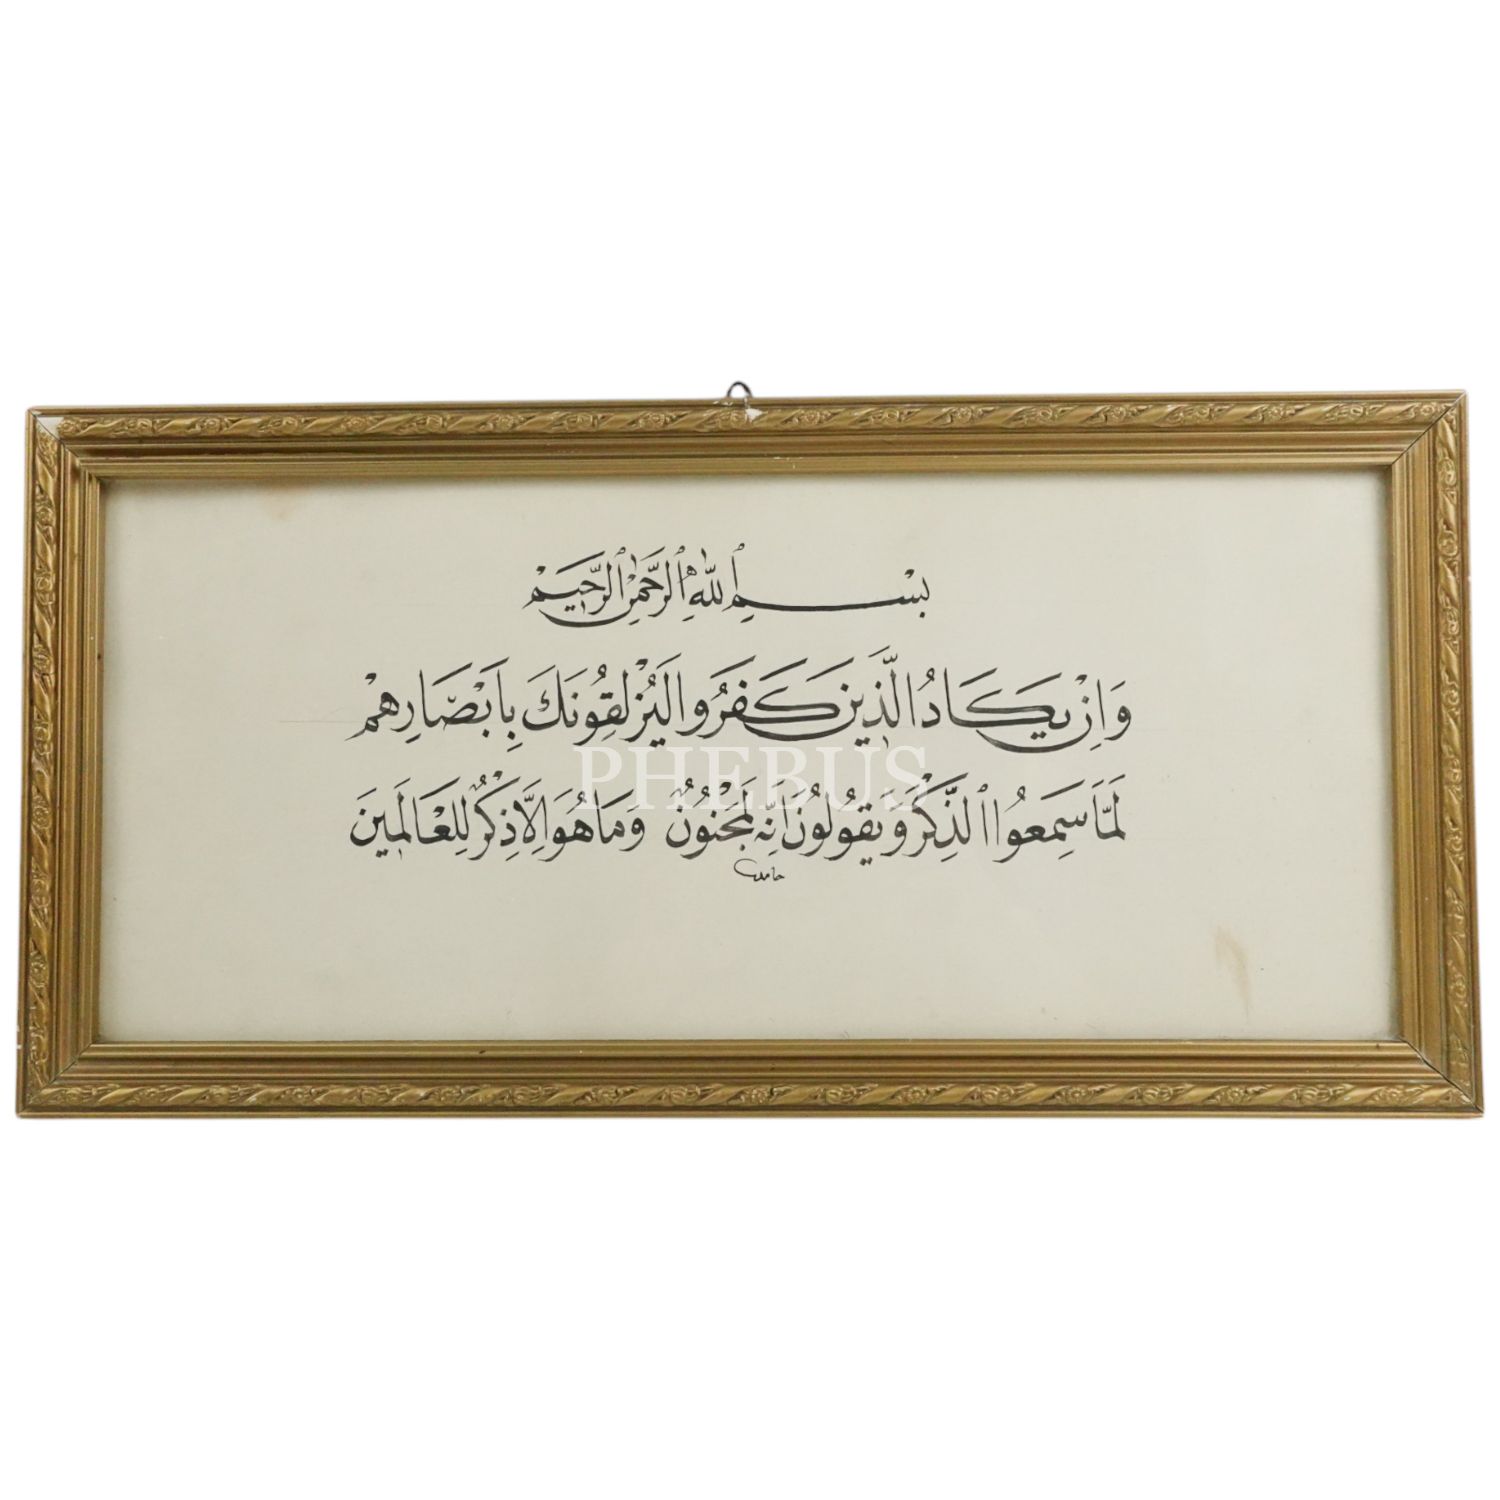 بِسْمِ ٱللّٰهِ ٱلرَّحْمٰنِ ٱلرَّحِيمْ
وَاِنْ يَكَادُ الَّذِينَ كَفَرُوا لَيُزْلِقُونَكَ بِاَبْصَارِهِمْ
PHEBUS
لَمَّا سَمِعُوا ٱلذِّكْرَ وَيَقُولُونَ اِنَّهُ لَمَجْنُونٌ وَمَا هُوَ اِلَّا ذِكْرٌ لِلْعَالَمِينَ
حامد